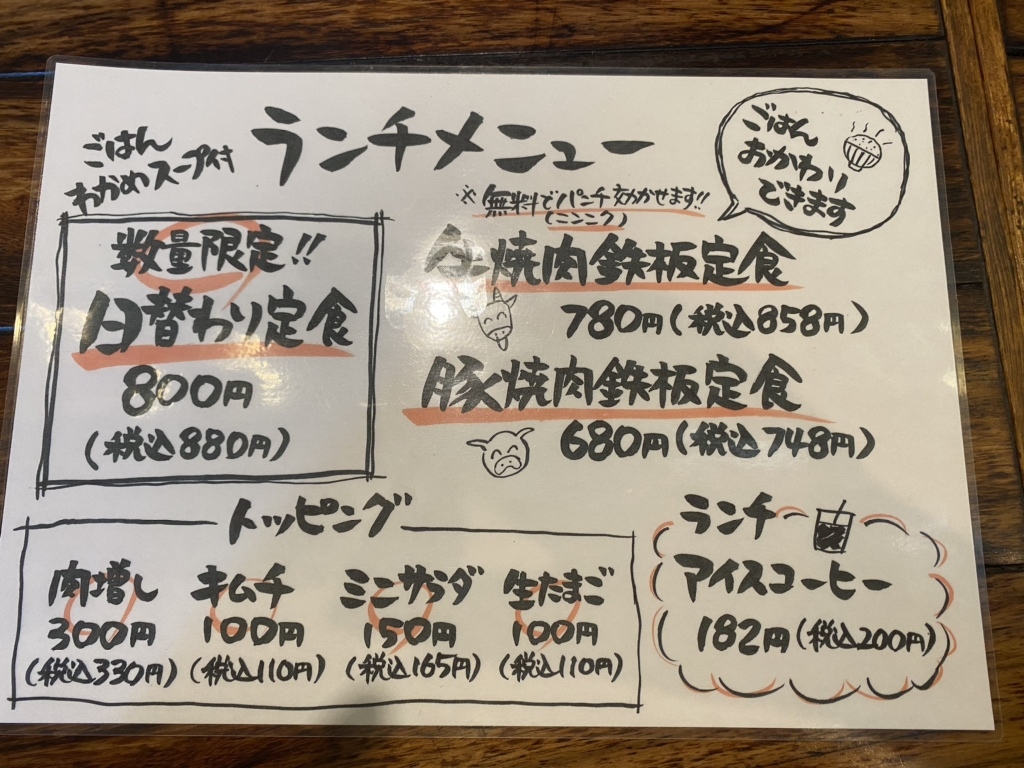 ランチメニュー
ごはん
わかめスープ付
ごはん
おかわり
できます
※無料でパンチ効かせます!!
(ニンニク)
数量限定!!
日替わり定食
800円
(税込880円)
牛焼肉鉄板定食
780円(税込858円)
豚焼肉鉄板定食
680円(税込748円)
トッピング
肉増し
300円
(税込330円)
キムチ
100円
(税込110円)
ミニサラダ
150円
(税込165円)
生たまご
100円
(税込110円)
ランチ
アイスコーヒー
182円(税込200円)